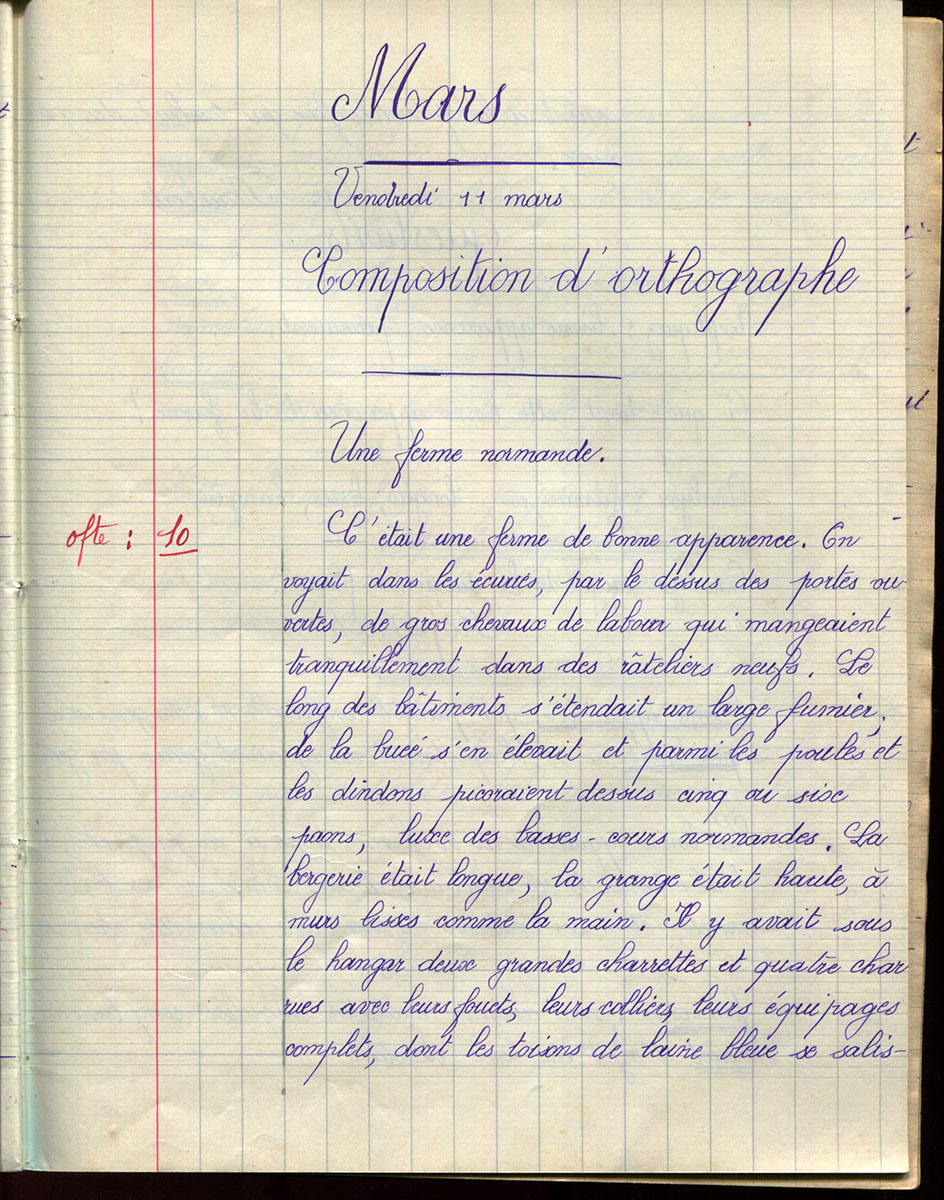 Mars
Vendredi 11 mars
Composition d'orthographe
Une ferme normande.
ofte : 10
C'était une ferme de bonne apparence. On
voyait dans les écuries, par le dessus des portes ou-
vertes, de gros chevaux de labour qui mangeaient
tranquillement dans des râteliers neufs. Le
long des bâtiments s'étendait un large fumier,
de la bueé s'en élevait et parmi les poules et
les dindons picoraient dessus cinq ou six
paons, luxe des basses-cours normandes. La
bergerie était longue, la grange était haute, à
murs lisses comme la main. Il y avait sous
le hangar deux grandes charrettes et quatre char
rues avec leurs fouets, leurs colliers, leurs équipages
complets, dont les toisons de laine bleue se salis-